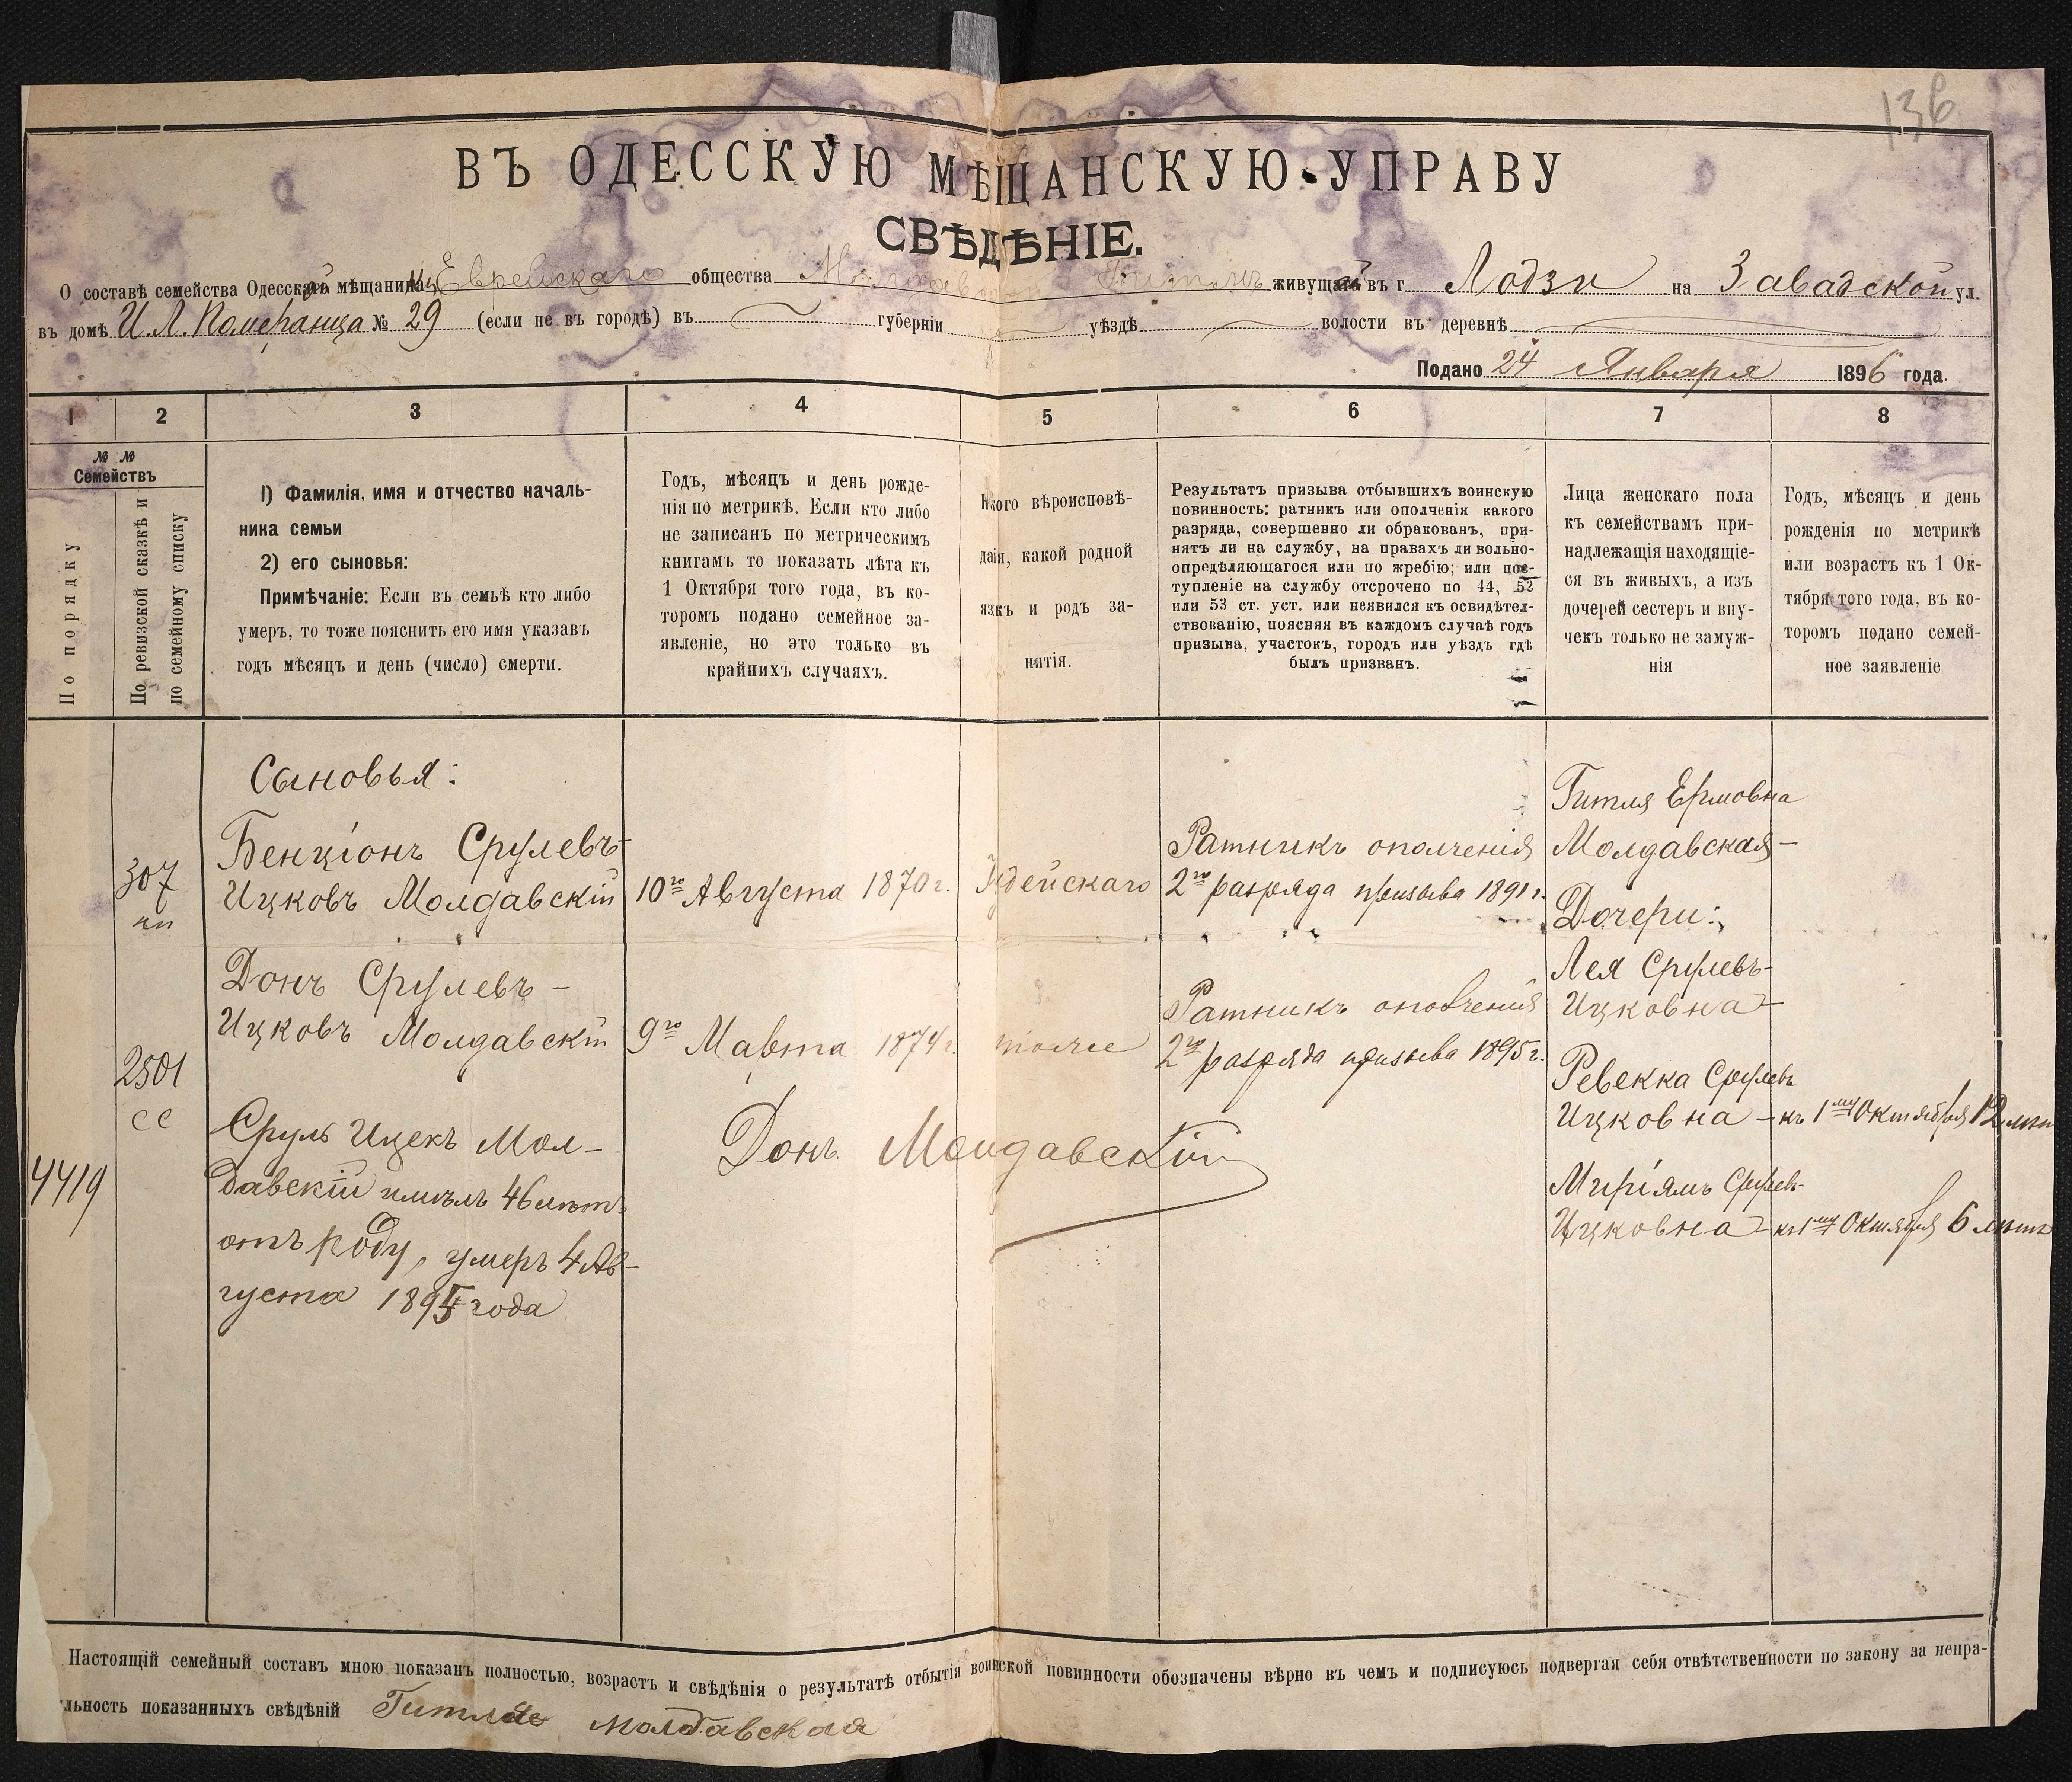 136
ВЪ ОДЕССКУЮ МѢЩАНСКУЮ УПРАВУ
СВѢДѢНІЕ.
О составѣ семейства Одесской мѣщанки Еврейскаго общества живущей въ г Лодзи на Завадской ул.
въ домѣ И. Л. Померанца № 29 (если не въ городѣ) въ губерніи уѣздѣ волости въ деревнѣ
Подано 24 Января 1896 года.
1 2 3 4 5 6 7 8
№ № Семействъ
По порядку
По ревизской сказкѣ и по семейному списку
1) Фамилія, имя и отчество началь-
ника семьи
2) его сыновья:
Примѣчаніе: Если въ семьѣ кто либо
умеръ, то тоже пояснить его имя указавъ
годъ мѣсяцъ и день (число) смерти.
Годъ, мѣсяцъ и день рожде-
нія по метрикѣ. Если кто либо
не записанъ по метрическимъ
книгамъ то показать лѣта къ
1 Октября того года, въ ко-
торомъ подано семейное за-
явленіе, но это только въ
крайнихъ случаяхъ.
Какого вѣроисповѣ-
данія, какой родной
языкъ и родъ за-
нятія.
Результатъ призыва отбывшихъ воинскую
повинность: ратникъ или ополченія какого
разряда, совершенно ли обракованъ, при-
нятъ ли на службу, на правахъ ли вольно-
опредѣляющагося или по жребію; или пос-
тупленіе на службу отсрочено по 44, 52
или 53 ст. уст. или неявился къ освидѣтел-
ствованію, поясняя въ каждомъ случаѣ годъ
призыва, участокъ, городъ или уѣздъ гдѣ
былъ призванъ.
Лица женскаго пола
къ семействамъ при-
надлежащія находящіе-
ся въ живыхъ, а изъ
дочерей сестеръ и вну-
чекъ только не замуж-
нія
Годъ, мѣсяцъ и день
рожденія по метрикѣ
или возрастъ къ 1 Ок-
тября того года, въ ко-
торомъ подано семей-
ное заявленіе
4419
307
кп
2501
сс
Сыновья:
Бенціонъ Срулевъ-
Ицковъ Молдавскій
10го Августа 1870 г.
Іудейскаго
Ратникъ ополченія
2го разряда призыва 1891 г.
Донъ Срулевъ-
Ицковъ Молдавскій
9го Марта 1874 г.
тоже
Ратникъ ополченія
2го разряда призыва 1895 г.
Сруль Ицекъ Мол-
давскій имѣлъ 46 лѣтъ
отъ роду, умеръ 4 Ав-
густа 1895 года
Донъ Молдавскій
Гитля Ермовна
Молдавская-
Дочери:
Лея Срулевъ-
Ицковна-
Ревекка Срулевъ
Ицковна - къ 1му Октября 12 лѣтъ
Миріямъ Срулевъ-
Ицковна - къ 1му Октября 6 лѣтъ
Настоящій семейный составъ мною показанъ полностью, возрастъ и свѣдѣнія о результатѣ отбытія воинской повинности обозначены вѣрно въ чемъ и подписуюсь подвергая себя отвѣтственности по закону за непра-
льность показанныхъ свѣдѣній Гитля Молдавская